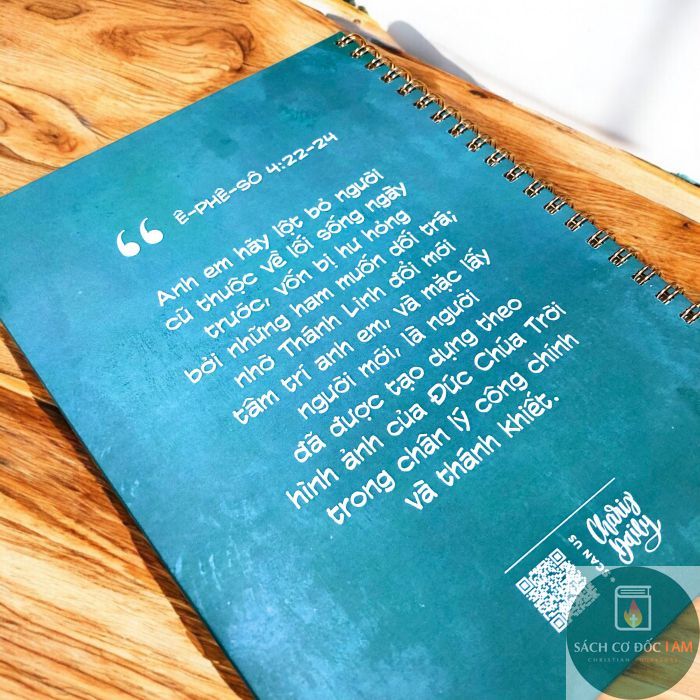 Ê-PHÊ-SÔ 4:22-24
Anh em hãy lột bỏ người
cũ thuộc về lối sống ngày
trước, vốn bị hư hỏng
bởi những ham muốn dối trá;
nhờ Thánh Linh đổi mới
tâm trí anh em, và mặc lấy
người mới, là người
đã được tạo dựng theo
hình ảnh của Đức Chúa Trời
trong chân lý công chính
và thánh khiết.
Charis
Daily
SCAN US
SÁCH CƠ ĐỐC I AM